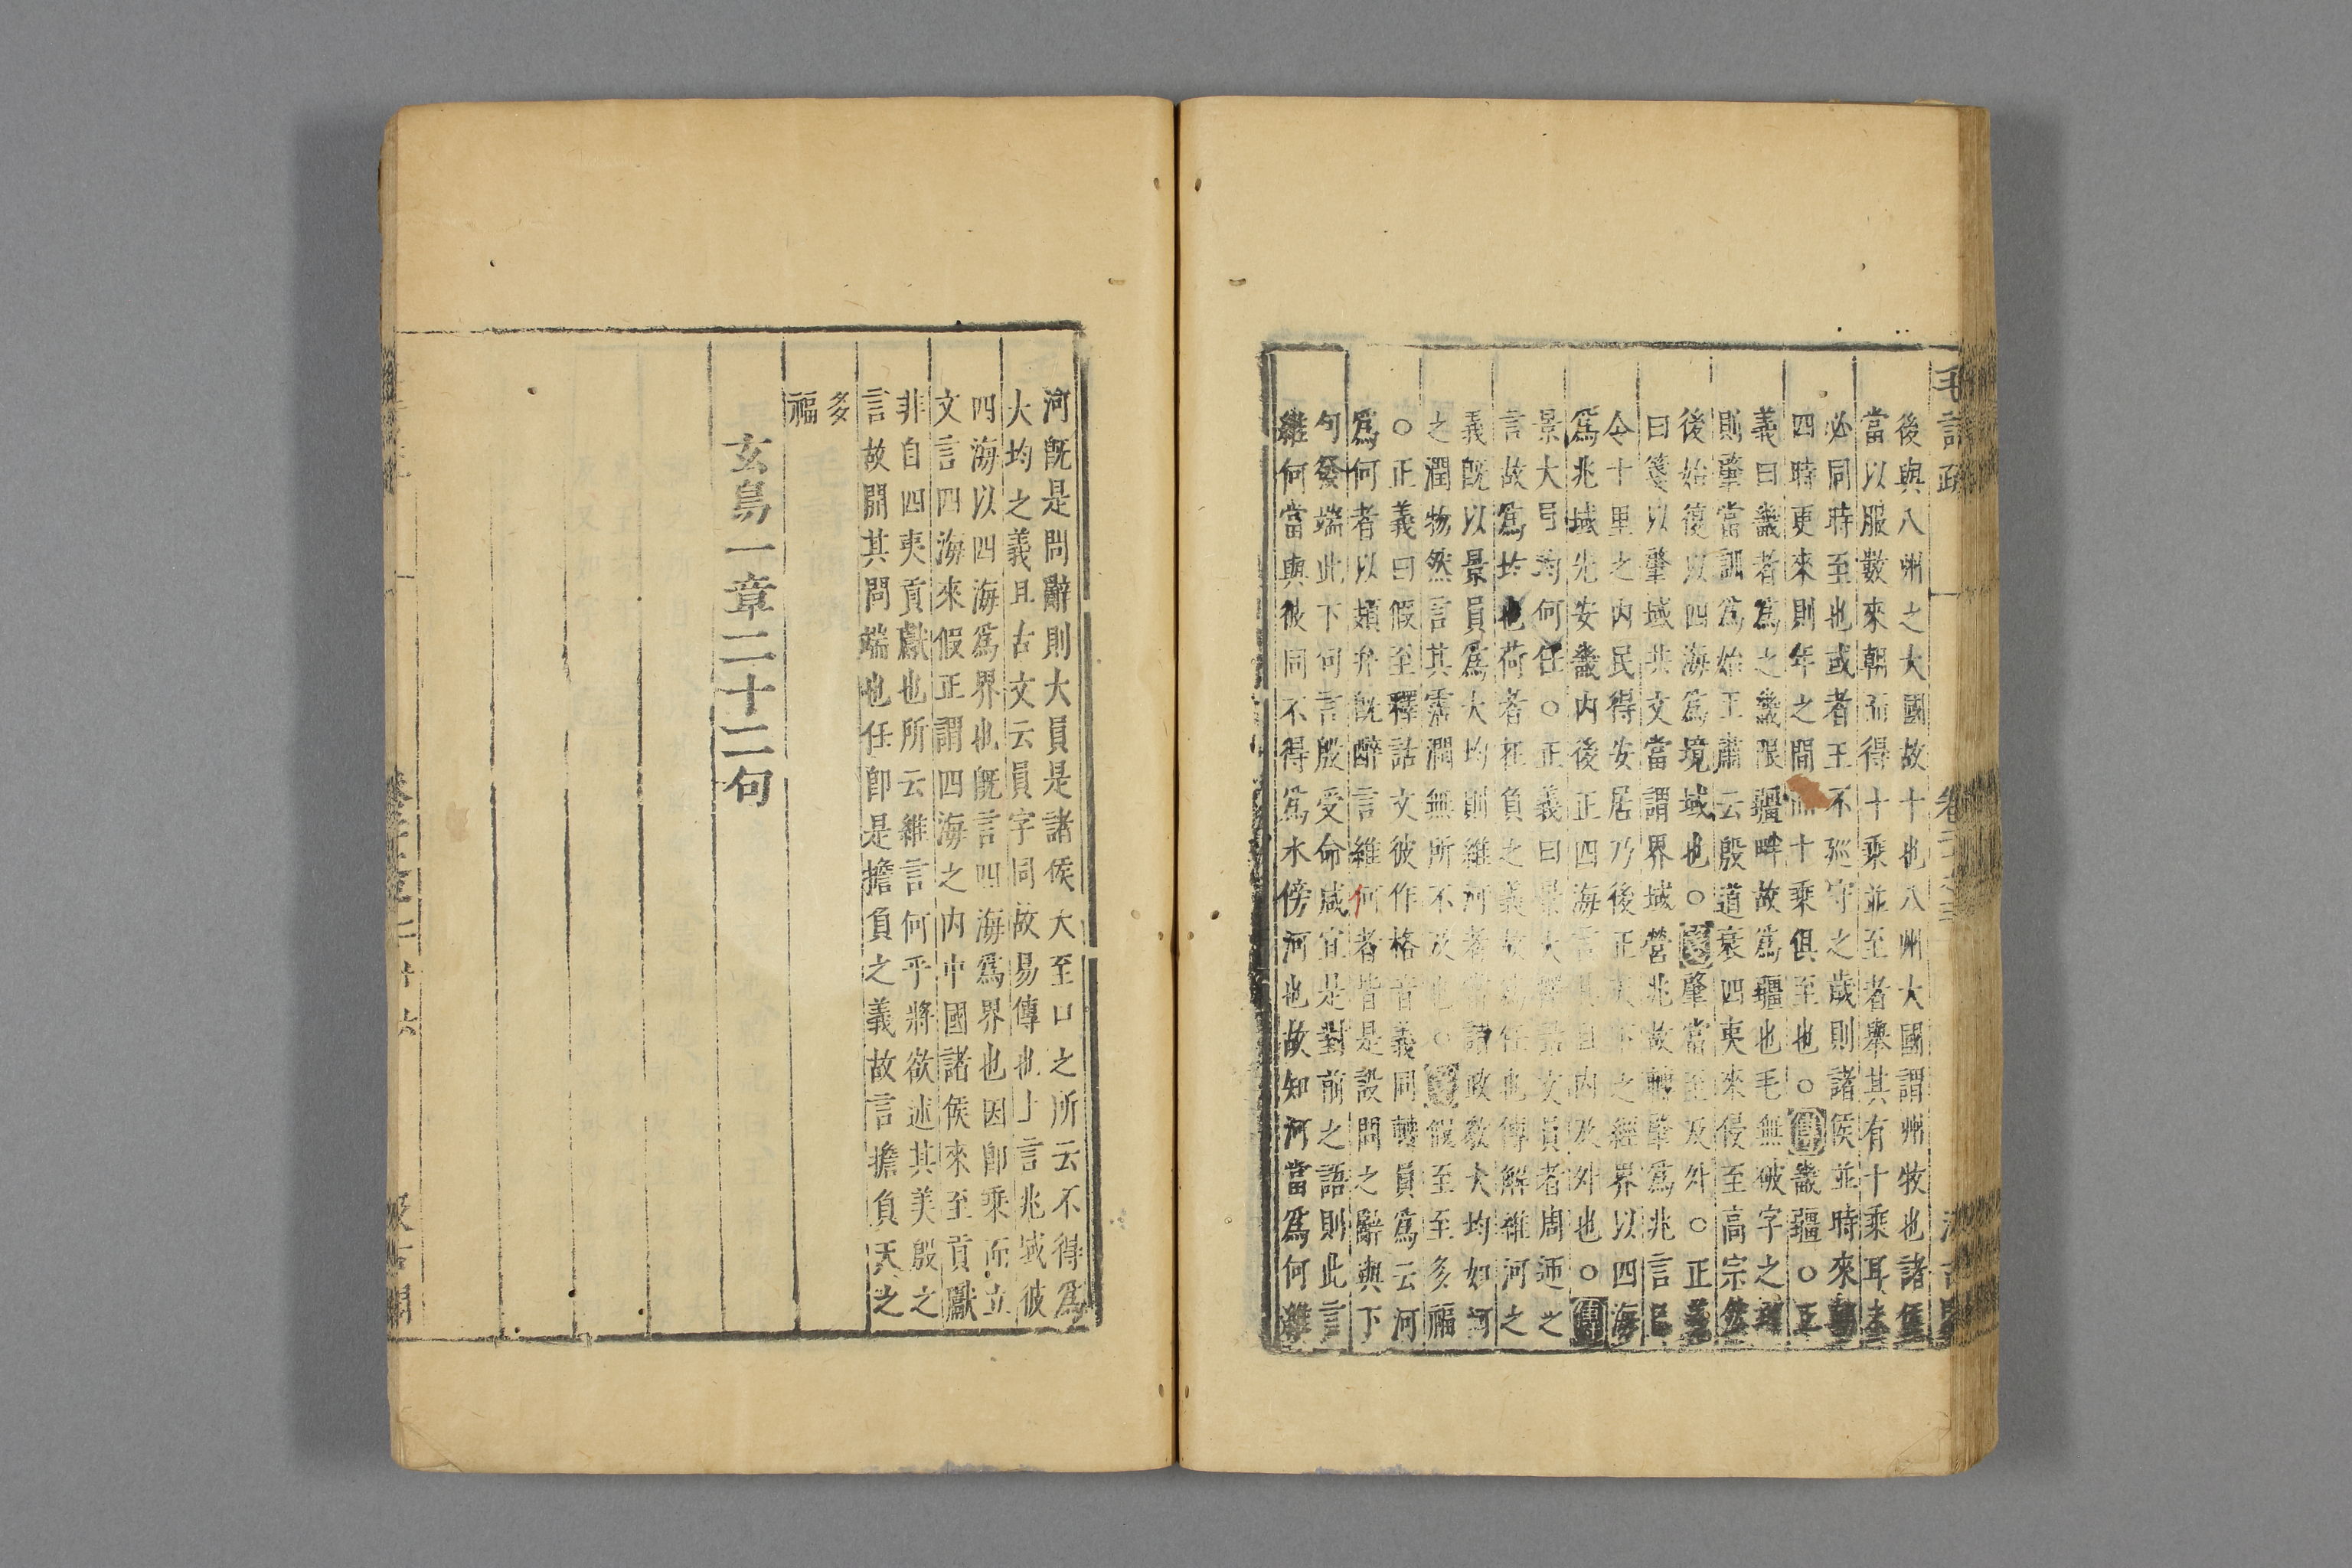 毛詩疏
後與八州之大國故十也八州大國謂州牧也諸侯
當以服數來朝而得十乘並至者舉其有十乘耳未
必同時至也或者王不巡守之歲則諸侯並時來朝
四時更來則年之間而十乘俱至也○畿疆○正
義曰畿者為之畿限疆畔故為疆也毛無破字之理
則肇當訓為始王肅云殷道衰四夷來侵至高宗然
後始復以四海為境域也○肇當至及外○正義
曰箋以肇域共文當謂界域營兆故轉肇為兆言已
令十里之內民得安居乃後正天下之經界以四海
為兆域先安畿內後正四海言其自內及外也○
景大員均何任○正義曰景大釋詁文員者周匝之
言故為均也荷者在負之義故為任也傳解維河之
義既以景員為大均則維河者當謂政教大均如河
之潤物然言其霑潤無所不及也○假至至多福
○正義曰假至釋詁文彼作格音義同轉員為云河
為何者以頍弁既醉言維何者皆是設問之辭與下
句發端此下句言殷受命咸宜是對前之語則此言
維何當與彼同不得為水傍河也故知河當為何維
河既是問辭則大員是諸侯大至口之所云不得為
大均之義且古文云員字同故易傳也上言兆域彼
四海以四海為界也既言四海為界也因即乘而立
文言四海來假正謂四海之內中國諸侯來至貢獻
非自四夷貢獻也所云維言何乎將欲述其美殷之
言故開其問端也任即是擔負之義故言擔負天之
多
福
玄鳥一章二十二句